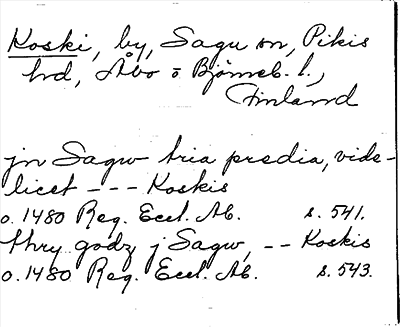 Koski, by, Sagu sn, Pikis
hd, Åbo o Björneb. l.,
Finland
jn Sagw tria predia, vide-
licet --- Koskis
o. 1480 Reg. Eccl. Ab. s. 541.
thry godz j Sagw, -- Koskis
o. 1480 Reg. Eccl. Ab. s. 543.